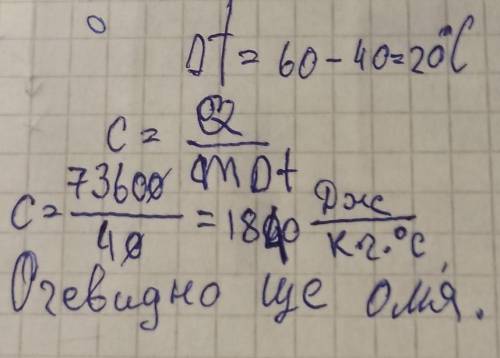 Dt = 60 - 40 = 20°C
C = Q / m Dt
C = 73600 / 40 = 1840 Дж / кг·°С
Очевидно ще олія.